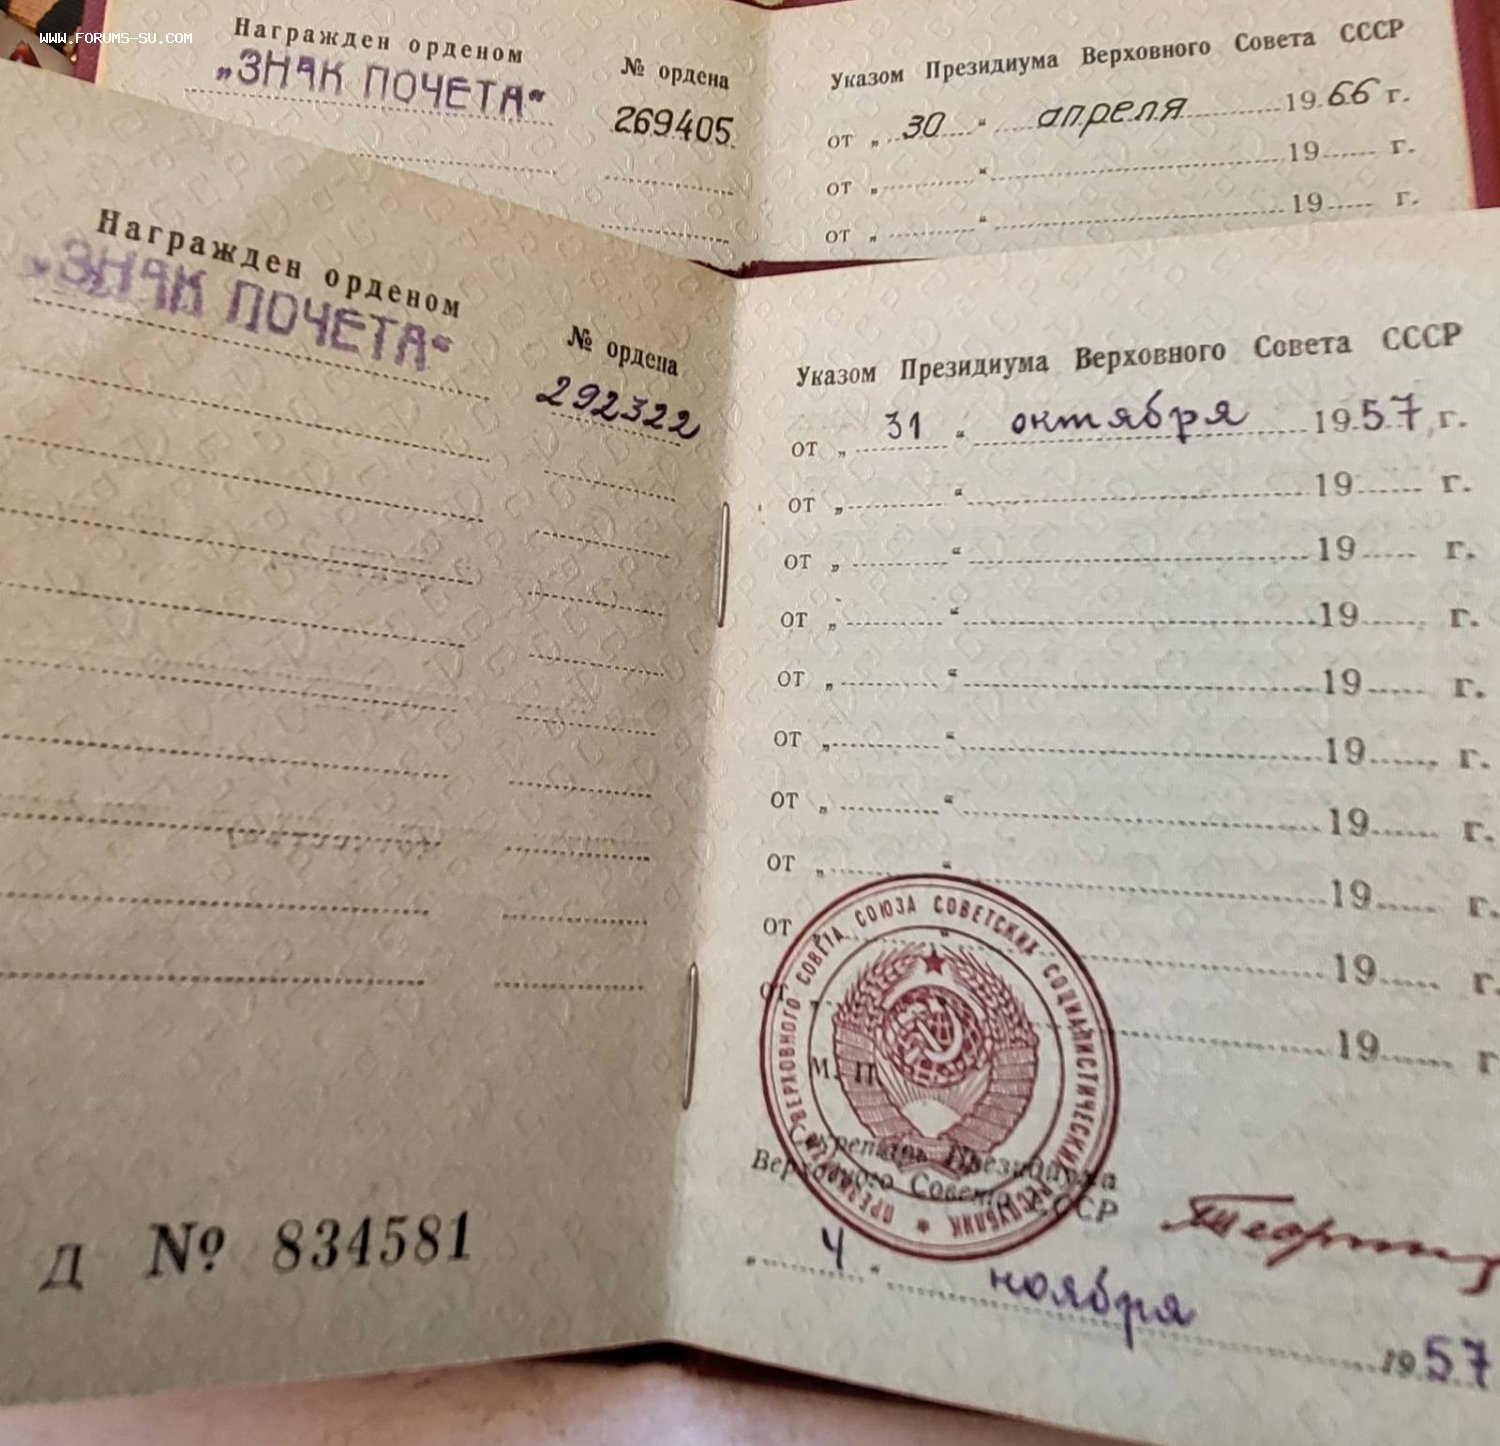 www.forums-su.com
Награжден орденом
„ЗНАК ПОЧЕТА“
№ ордена
269405
Указом Президиума Верховного Совета СССР
от „ 30 “ апреля 1966 г.
от „ “ 19 г.
от „ “ 19 г.
Награжден орденом
„ЗНАК ПОЧЕТА“
№ ордена
292322
Д № 834581
Указом Президиума Верховного Совета СССР
от „ 31 “ октября 1957 г.
от „ “ 19 г.
от „ “ 19 г.
от „ “ 19 г.
от „ “ 19 г.
от „ “ 19 г.
от „ “ 19 г.
от „ “ 19 г.
от „ “ 19 г.
от „ “ 19 г.
М. П.
ПРЕЗИДИУМ ВЕРХОВНОГО СОВЕТА СОЮЗА СОВЕТСКИХ СОЦИАЛИСТИЧЕСКИХ РЕСПУБЛИК
Секретарь Президиума
Верховного Совета СССР
„ 4 “ ноября 1957